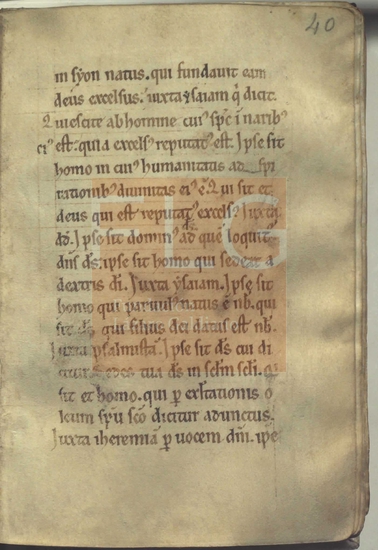 40
in syon natus. qui fundavit eam
deus excelsus. iuxta ysaiam q̄ dicit.
Quiescite ab homine cuiꝰ sp̄c ī naribꝰ
eiꝰ est. quia excelsꝰ reputatꝰ est. Ipse sit
homo in cuiꝰ humanitatis ad spi
rationibꝰ divinitas eiꝰ ē. Qui sit et
deus qui est reputatꝰ excelsꝰ iuxta
dd. Ipse sit dominꝰ ad quē loquitꝰ
dn̄s ds̄. ipse sit homo qui sedet a
dextris di̅. Iuxta ysaiam. Ipse sit
homo qui parvulꝰ natus ē nb̄. qui
sit ds̄ qui filius dei datus est nb̄.
Iuxta psalmistā. Ipse sit ds̄ cui di
citur sedes tua ds̄ in scl̄m scl̄i.
sit et homo. qui p̄ exl̄tationis o
sp̄u sc̄o dicitur adunctus.
Iuxta iheremiā p̄ vocem dn̄i. ipse